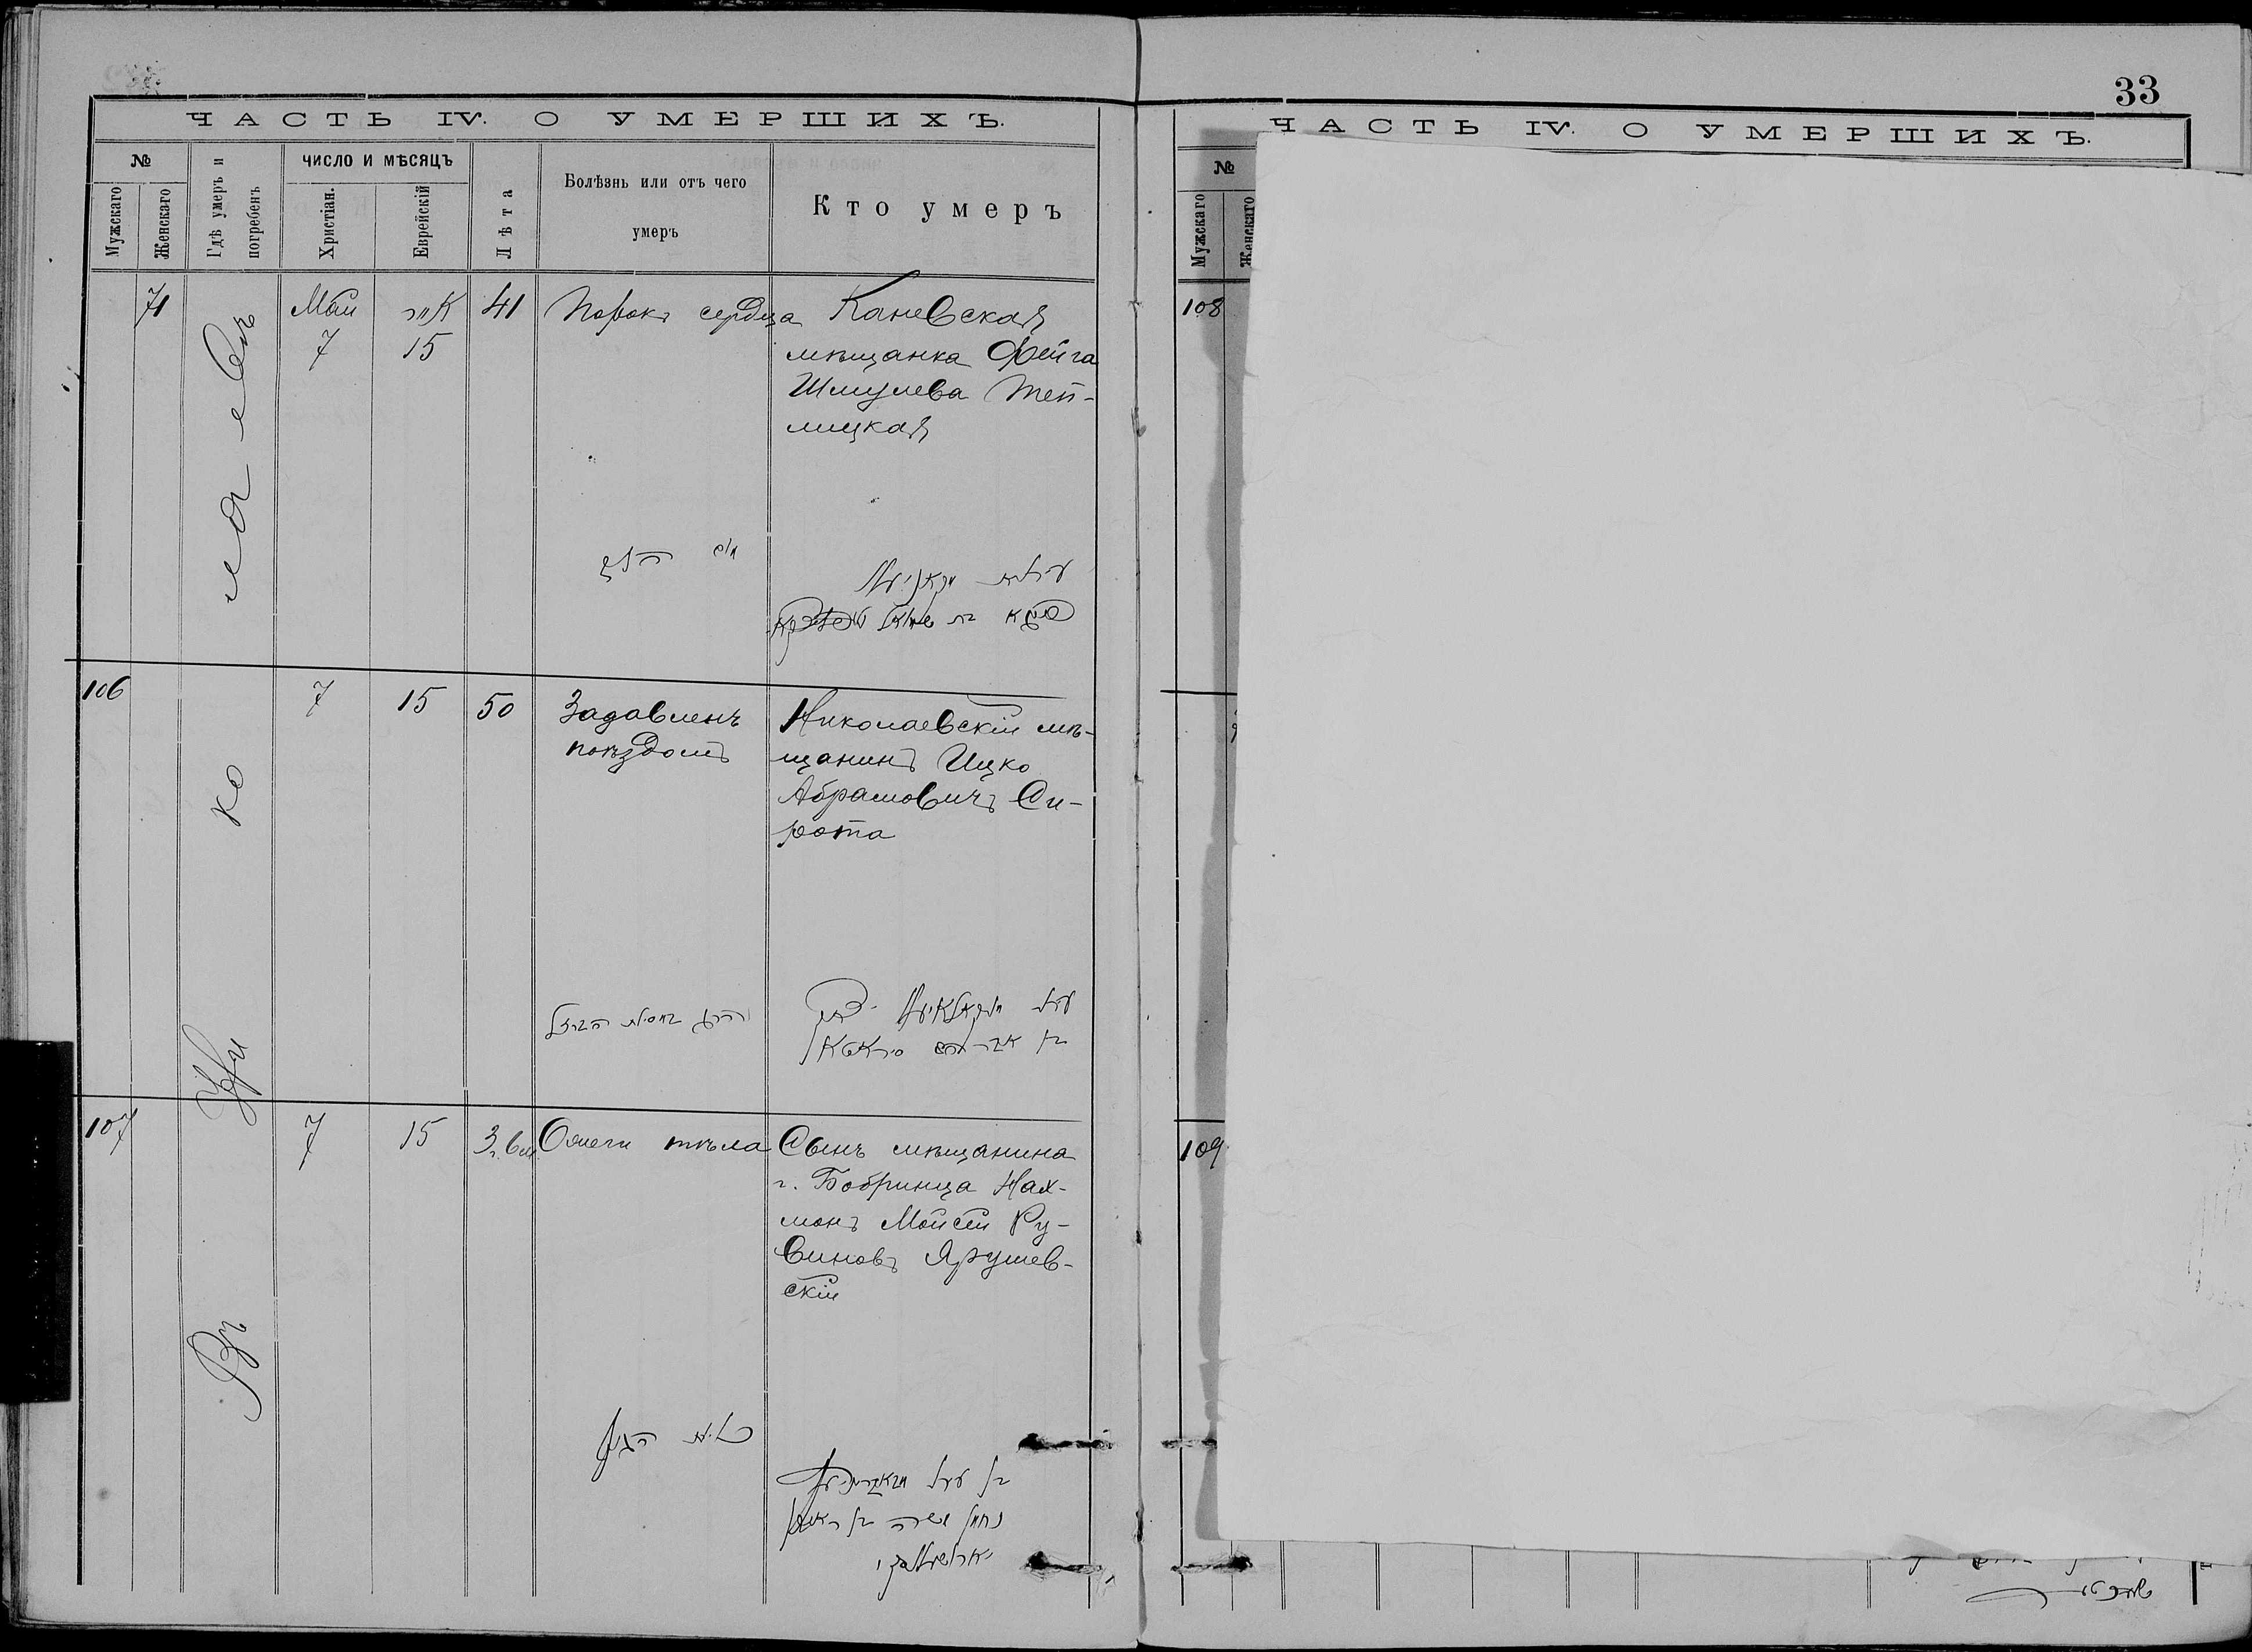 ЧАСТЬ IV. О УМЕРШИХЪ.
№
Мужскаго
Женскаго
Гдѣ умеръ и
погребенъ
ЧИСЛО И МѢСЯЦЪ
Христіан.
Еврейскій
Лѣта
Болѣзнь или отъ чего
умеръ
Кто умеръ
71
Май
7
15
41
Порокъ сердца
Каневская
мѣщанка Фейга
Шмулева Теп-
лицкая
מום הלב
106
7
15
50
Задавленъ
поѣздомъ
Николаевскій мѣ-
щанинъ Ицко
Абрамовичъ Си-
рота
בן אברהם סיראטא
107
7
15
3 г. 6 м
Ожеги тѣла
Сынъ мѣщанина
г. Бобринца Нах-
монъ Мойсей Ру-
виновъ Ярушев-
скій
נחמן משה בן ראובן
Въ Николаевѣ
33
ЧАСТЬ IV. О УМЕРШИХЪ.
№
Мужскаго
Женскаго
108
109